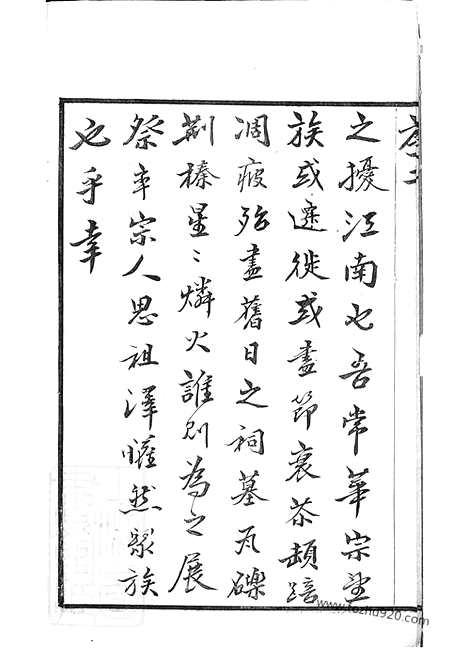 之擾江南也吾常華宗望
族或遷徙或盡節衰苶顛踣
凋疲殆盡舊日之祠墓瓦礫
荊榛星星燐火誰則為之展
祭率宗人思祖澤慨然聚族
也乎幸
www.fozhu920.com